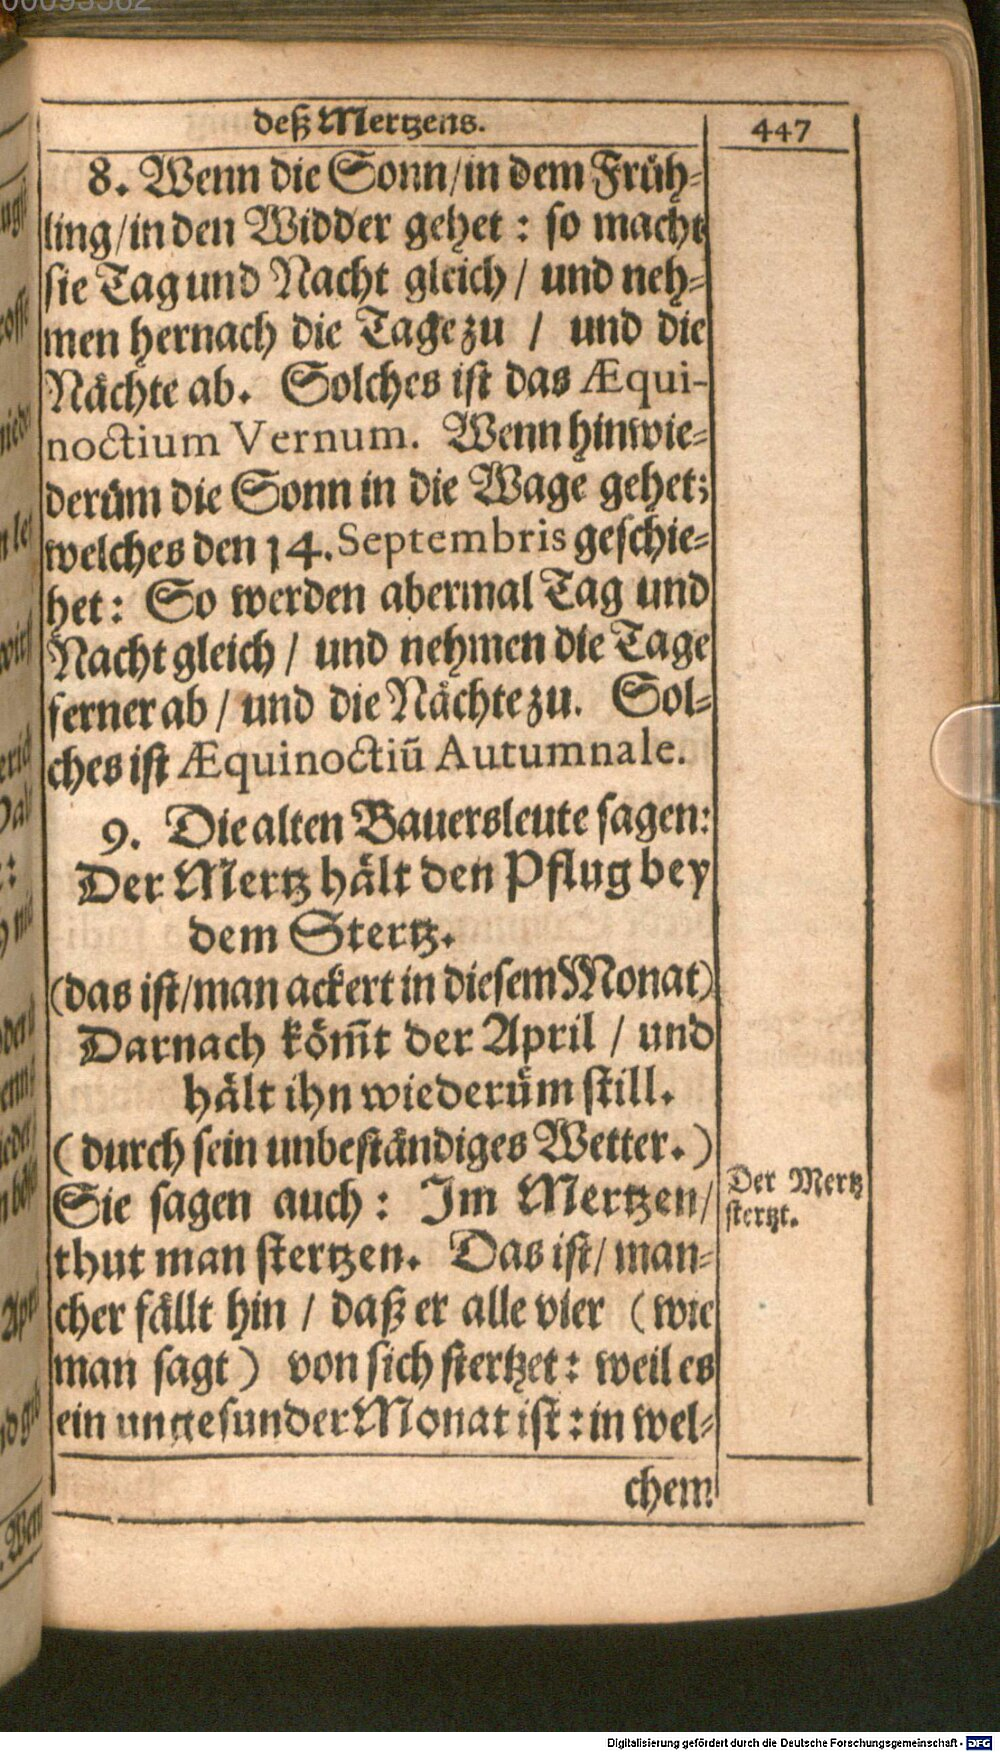 deß Mertzens.
447
8. Wenn die Sonn/in dem Früh-
ling/in den Widder gehet: so macht
sie Tag und Nacht gleich / und neh-
men hernach die Tage zu / und die
Nächte ab. Solches ist das Æqui-
noctium Vernum. Wenn hinwie-
derüm die Sonn in die Wage gehet;
welches den 14. Septembris geschie-
het: So werden abermal Tag und
Nacht gleich / und nehmen die Tage
ferner ab / und die Nächte zu. Sol-
ches ist Æquinoctiū Autumnale.
9. Die alten Bauersleute sagen:
Der Mertz hält den Pflug bey
dem Stertz.
(das ist/man ackert in diesem Monat)
Darnach köm̃t der April / und
hält ihn wiederüm still.
(durch sein unbeständiges Wetter.)
Sie sagen auch: Im Mertzen/
thut man stertzen. Das ist/ man-
cher fällt hin / daß er alle vier (wie
man sagt) von sich stertzet: weil es
ein ungesunder Monat ist: in wel-
chem
Der Mertz
stertzt.
Digitalisierung gefördert durch die Deutsche Forschungsgemeinschaft - DFG